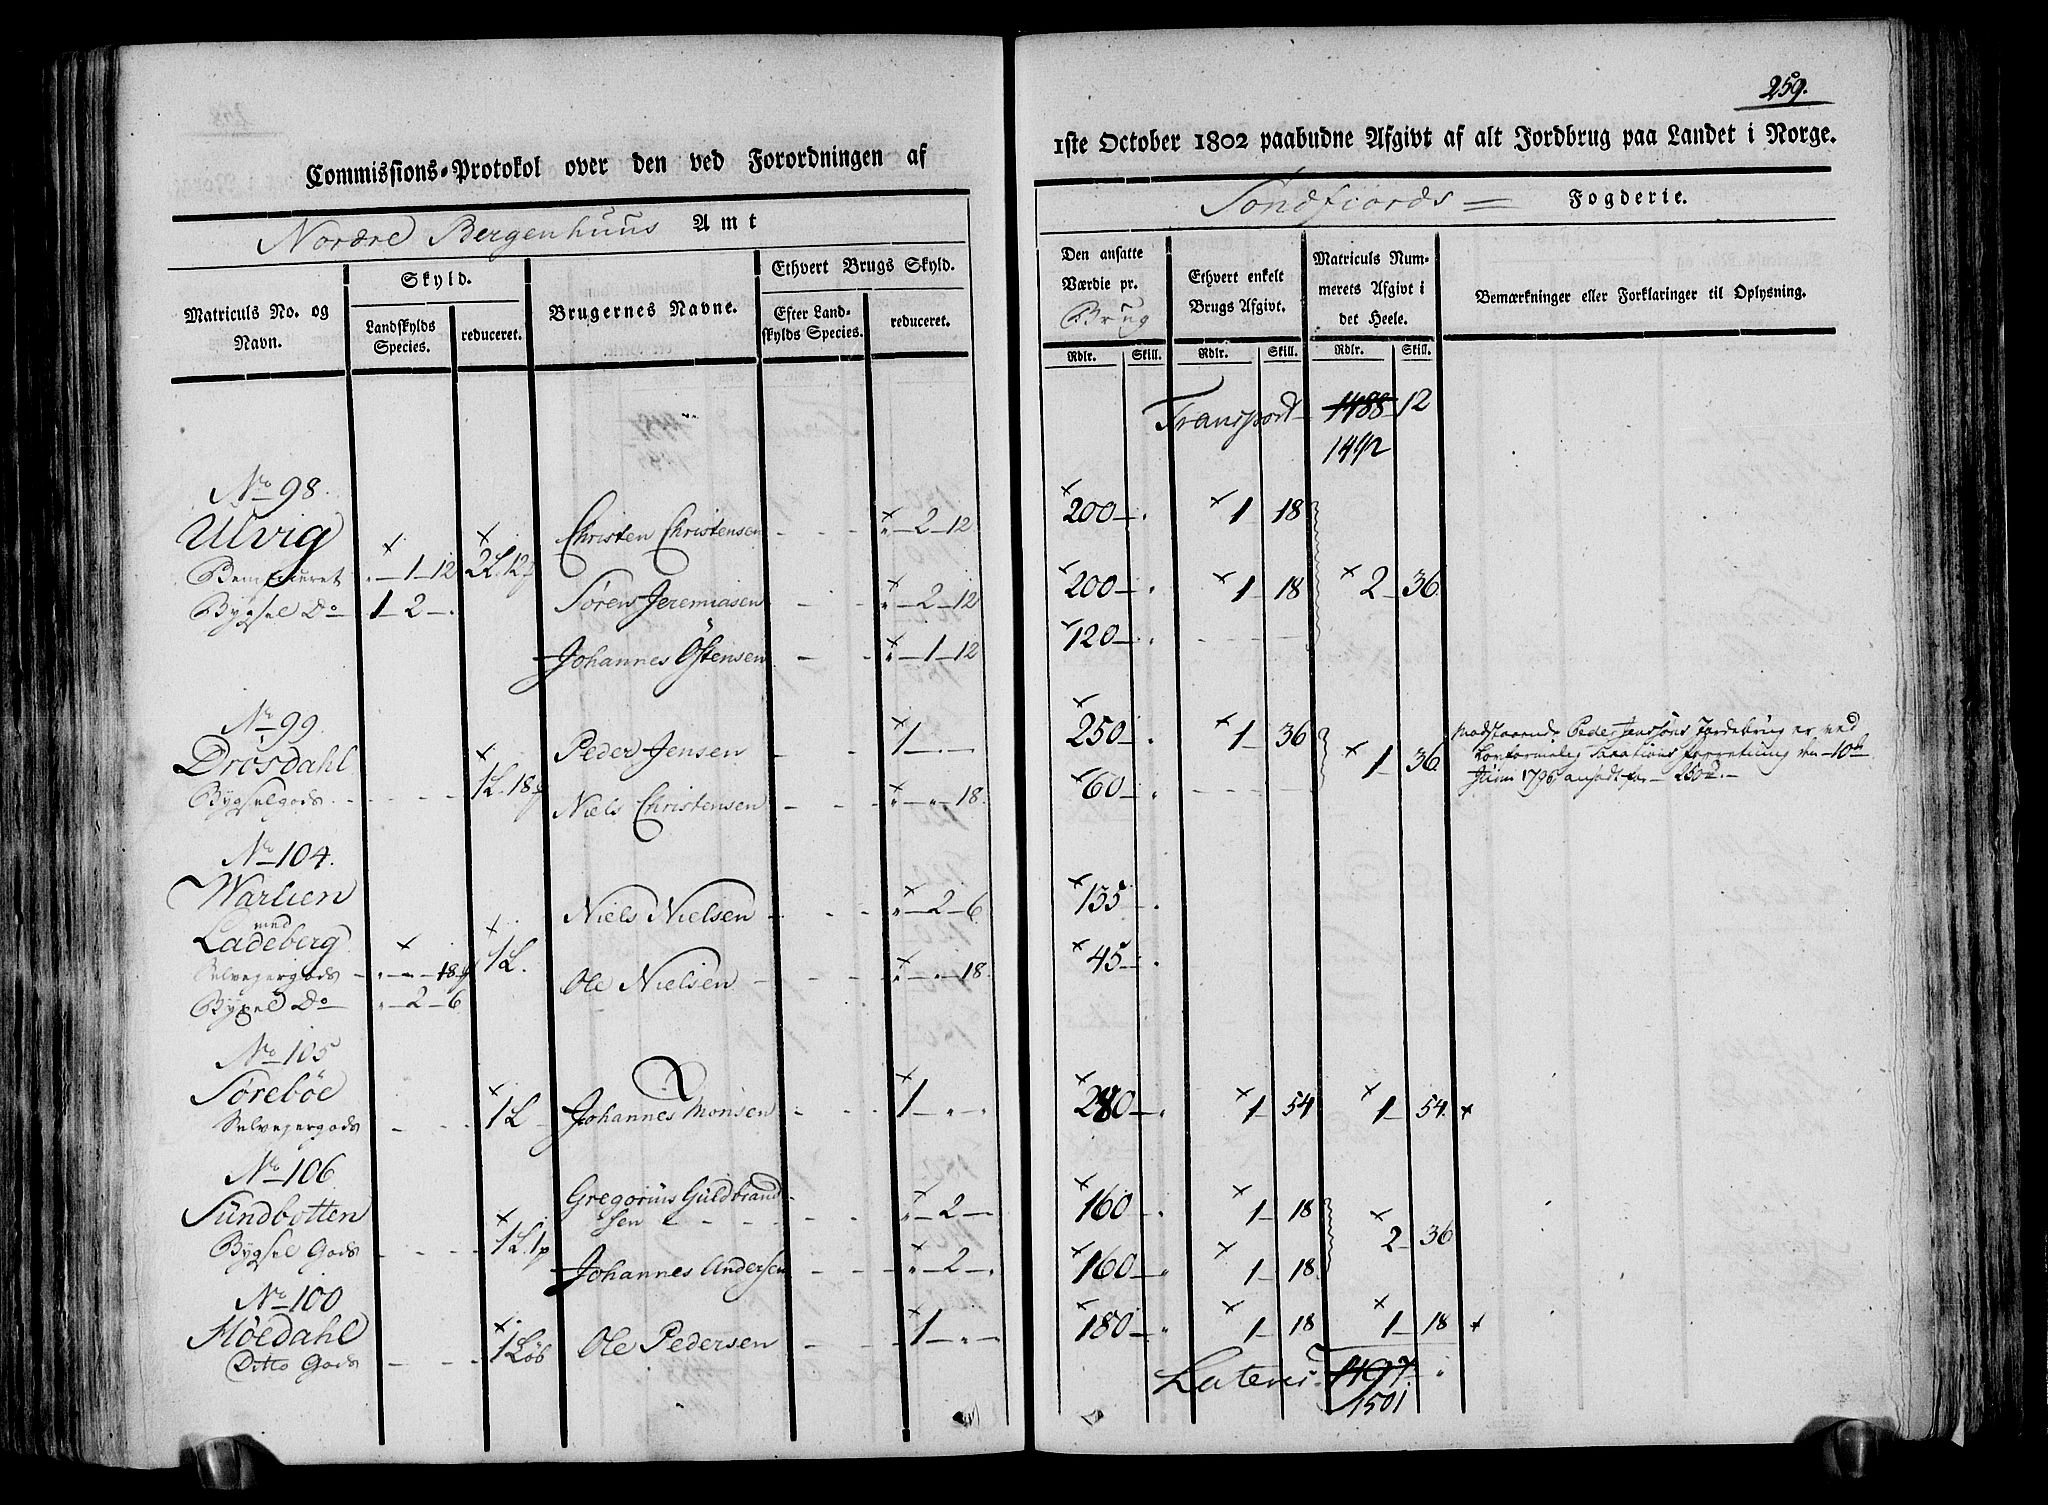 Commissions-Protokol over den ved Forordningen af
Nordre Bergenhuus Amt
Matriculs No. og Navn.
Skyld.
Landskylds Species.
reduceret.
Brugernes Navne.
Ethvert Brugs Skyld.
Efter Landskylds Species.
reduceret.
No 98.
Ulvig
Beneficeret „ — 1 — 12
2L. 12
Bygsel Do 1 — 2 — „
Christen Christensen „ — 2 — 12
Sören Jeremiasen „ — 2 — 12
Johannes Östensen „ — 1 — 12
No 99.
Drösdahl
Bygselgods
1L. 18
Peder Jensen 1 — „ — „
Niels Christensen „ — „ — 18.
No 104.
Warlien
med
Ladeberg
Selvejergods „ — „ — 18
1L.
Bygsel Do „ — 2 — 6
Niels Nielsen „ — 2 — 6
Ole Nielsen „ — „ — 18.
No 105
Söreböe
Selvejergods
1L
Johannes Monsen 1 — „ — „
No 106
Sundbotten
Bygsel Gods
1L. 1p
Gregorius Guldbrand-
sen „ — 2 — „
Johannes Andersen „ — 2 — „
No 100
Höedahl
Ditto Gods
1 Löb
Ole Pedersen 1 — „ — „
259.
1ste October 1802 paabudne Afgivt af alt Jordbrug paa Landet i Norge.
Söndfiords Fogderie.
Den ansatte Værdie pr. Brug
Ethvert enkelt Brugs Afgivt.
Matriculs Nummerets Afgivt i det Heele.
Bemærkninger eller Forklaringer til Oplysning.
Rdlr. Skill. Rdlr. Skill. Rdlr. Skill.
Transport 1488 12
1492
200 — „ 1 — 18
200 — „ 1 — 18 2 — 36
120 — „
250 — „ 1 — 36
1 — 36
60 — „
Modstaaende Peder Jensöns Jordebrug er ved
Taxations Forretning
Junii 1796 ansadt for 250
135 — „
45 — „
280 — „ 1 — 54 1 — 54
160 — „ 1 — 18
2 — 36
160 — „ 1 — 18
180 — „ 1 — 18 1 — 18
Lateris 1497 „
1501